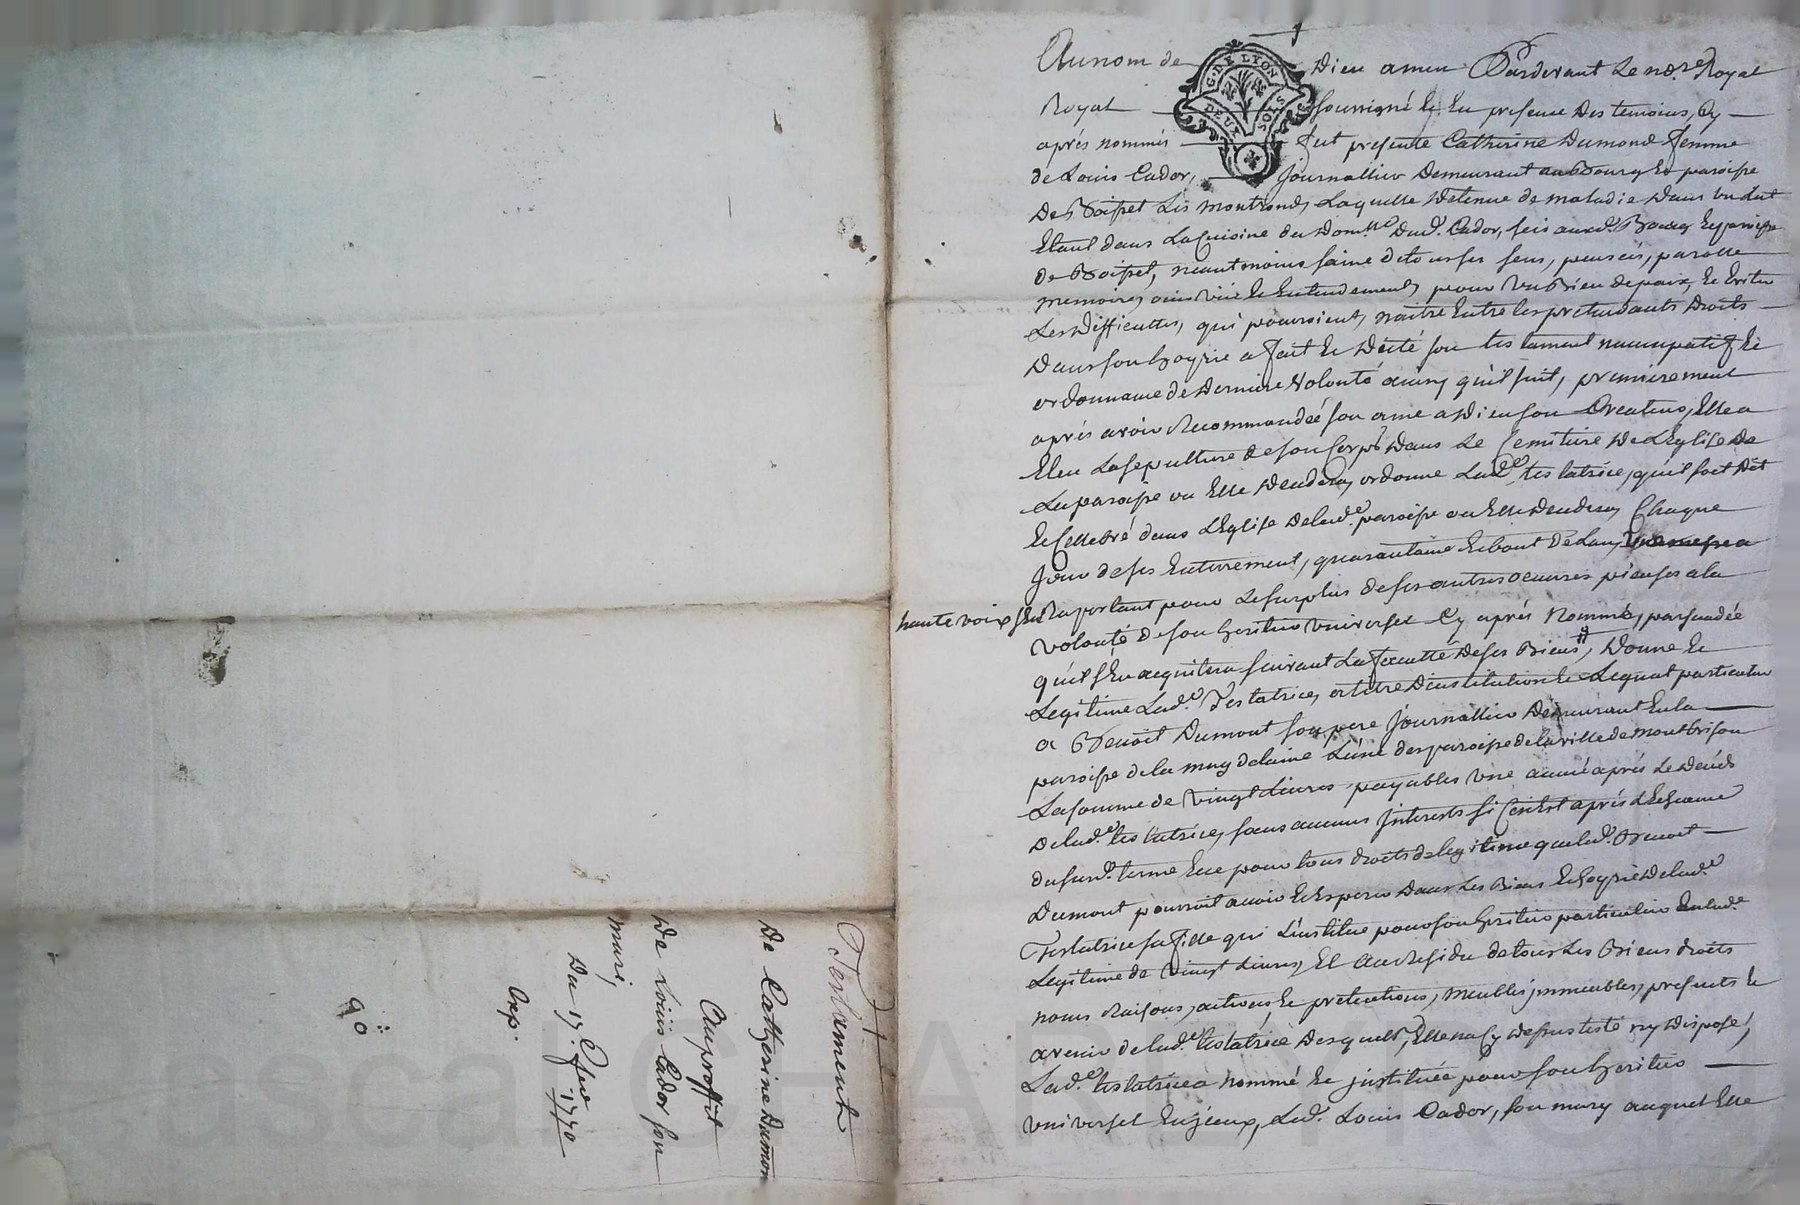 Au nom de Dieu amen Pardevant Le no.re Royal
Royal soussigné Et En presence Des temoins, Cy
après nommés fut presente Catherine Dumond femme
de Louis Cador, journallier Demeurant au Bourg Et paroisse
De Boisset Les montrond, Laquelle Detenue de maladie Dans un Lit
Etant dans La Cuisine du Dom.lle Dud. Cador, scis aud. Bourg Et paroisse
de Boisset, neantmoins saine de tous ses sens, pensées, parolle
memoire, ouie vüe Et Entendement, pour un Bien de paix, Et Eviter
Les Difficultes, qui pourroient, naitre Entre les pretendants Droits
Dans son hoyrie a fait Et Dicté son testament nuncupatif Et
ordonnance de Derniere Volonté ainsy qu'il suit, premierement
après avoir Recommandée son ame a Dieu son Createur, Elle a
Eleu La sepulture de son Corps Dans Le Cemitiere De L'Eglise De
La paroisse ou Elle Decedera, ordonne Lad.e testatrice, qu'il soit Dit
Et Cellebré dans L'Eglise De lad.e paroisse ou Elle Decedera, Chaque
Jour de ses Enterrement, quarantaine Et bout De L'an
haute voix s'En Raportant pour Le surplus de ses autres oeuvres pieuses a la
volonté de son heritier universel Cy après Nommé, persuadée
qu'il s'En acquittera suivant La faculté De ses Biens, Donne Et
Legitime Lad.e Testatrice, a titre D'institution Et Legat particulier
a Benoit Dumont son pere Journallier Demeurant En la
paroisse de la magdelaine L'une des paroisse de la ville de montbrison
La somme de vingt Livres payables une année après Le Decéds
De lad.e testatrice, sans aucuns Interests si Cen'Est après L'Echeance
dususd. terme Et ce pour tous droits de legitime que led. Benoit
Dumont pourroit avoir Et Esperer Dans Les Biens Et hoyrie De lad.e
Testatrice sa fille qui L'institue pour son heritier particulier En lad.e
Legitime de vingt Livres, Et Au Residu de tous Les Biens droits
noms Raisons, actions, Et pretentions, meubles, immeubles, presents Et
avenir de lad.e testatrice Desquels, Elle na Cy dessus testé ny Disposé,
Lad.e testatrice a nommé Et instituée pour son heritier
universel En jceux, Led. Louis Cador, son mary auquel Elle
Testament
De Catherine Dumon
Auproffit
De Loüis Cador son
mari,
Du 17. 1770
Exp.
90